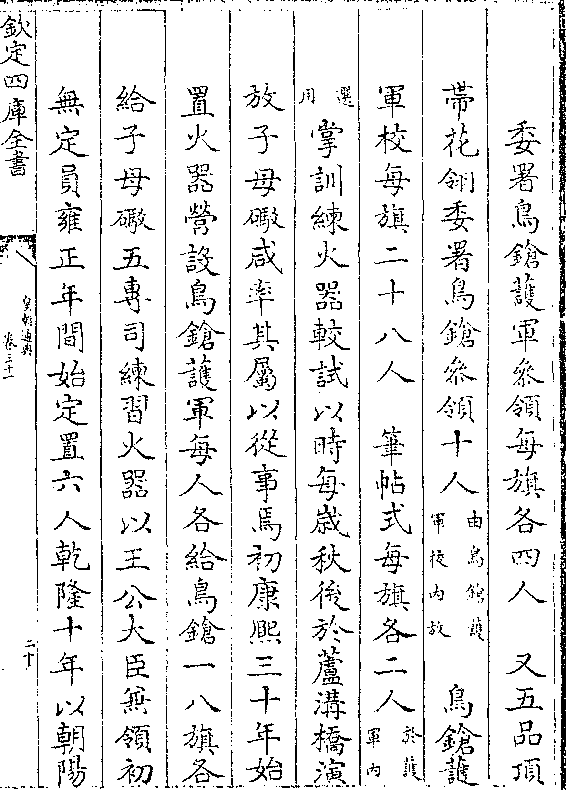 委署鳥鎗䕶軍叅領每旗各四人　又五品頂
帶花翎委署鳥鎗叅領十人由鳥鎗䕶軍校内放　鳥鎗䕶
軍校每旗二十八人　筆帖式每旗各二人於䕶軍内
選用掌訓練火器較試以時每歳秋後於蘆溝橋演
放子母礮咸率其屬以從事焉初康熙三十年始
置火器營設鳥鎗䕶軍每人各給鳥鎗一八旗各
給子母礮五專司練習火器以王公大臣兼領初
無定員雍正年間始定置六人乾隆十年以朝陽
欽定四庫全書
皇朝通典
卷三十一
二十